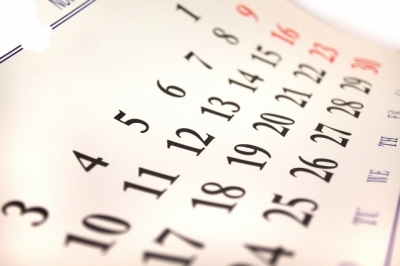 1
3 4 5 6 7 8 9
10 11 12 13 14 15 16
17 18 19 20 21 22 23
24 25 26 27 28 29 30
TU WE TH FR